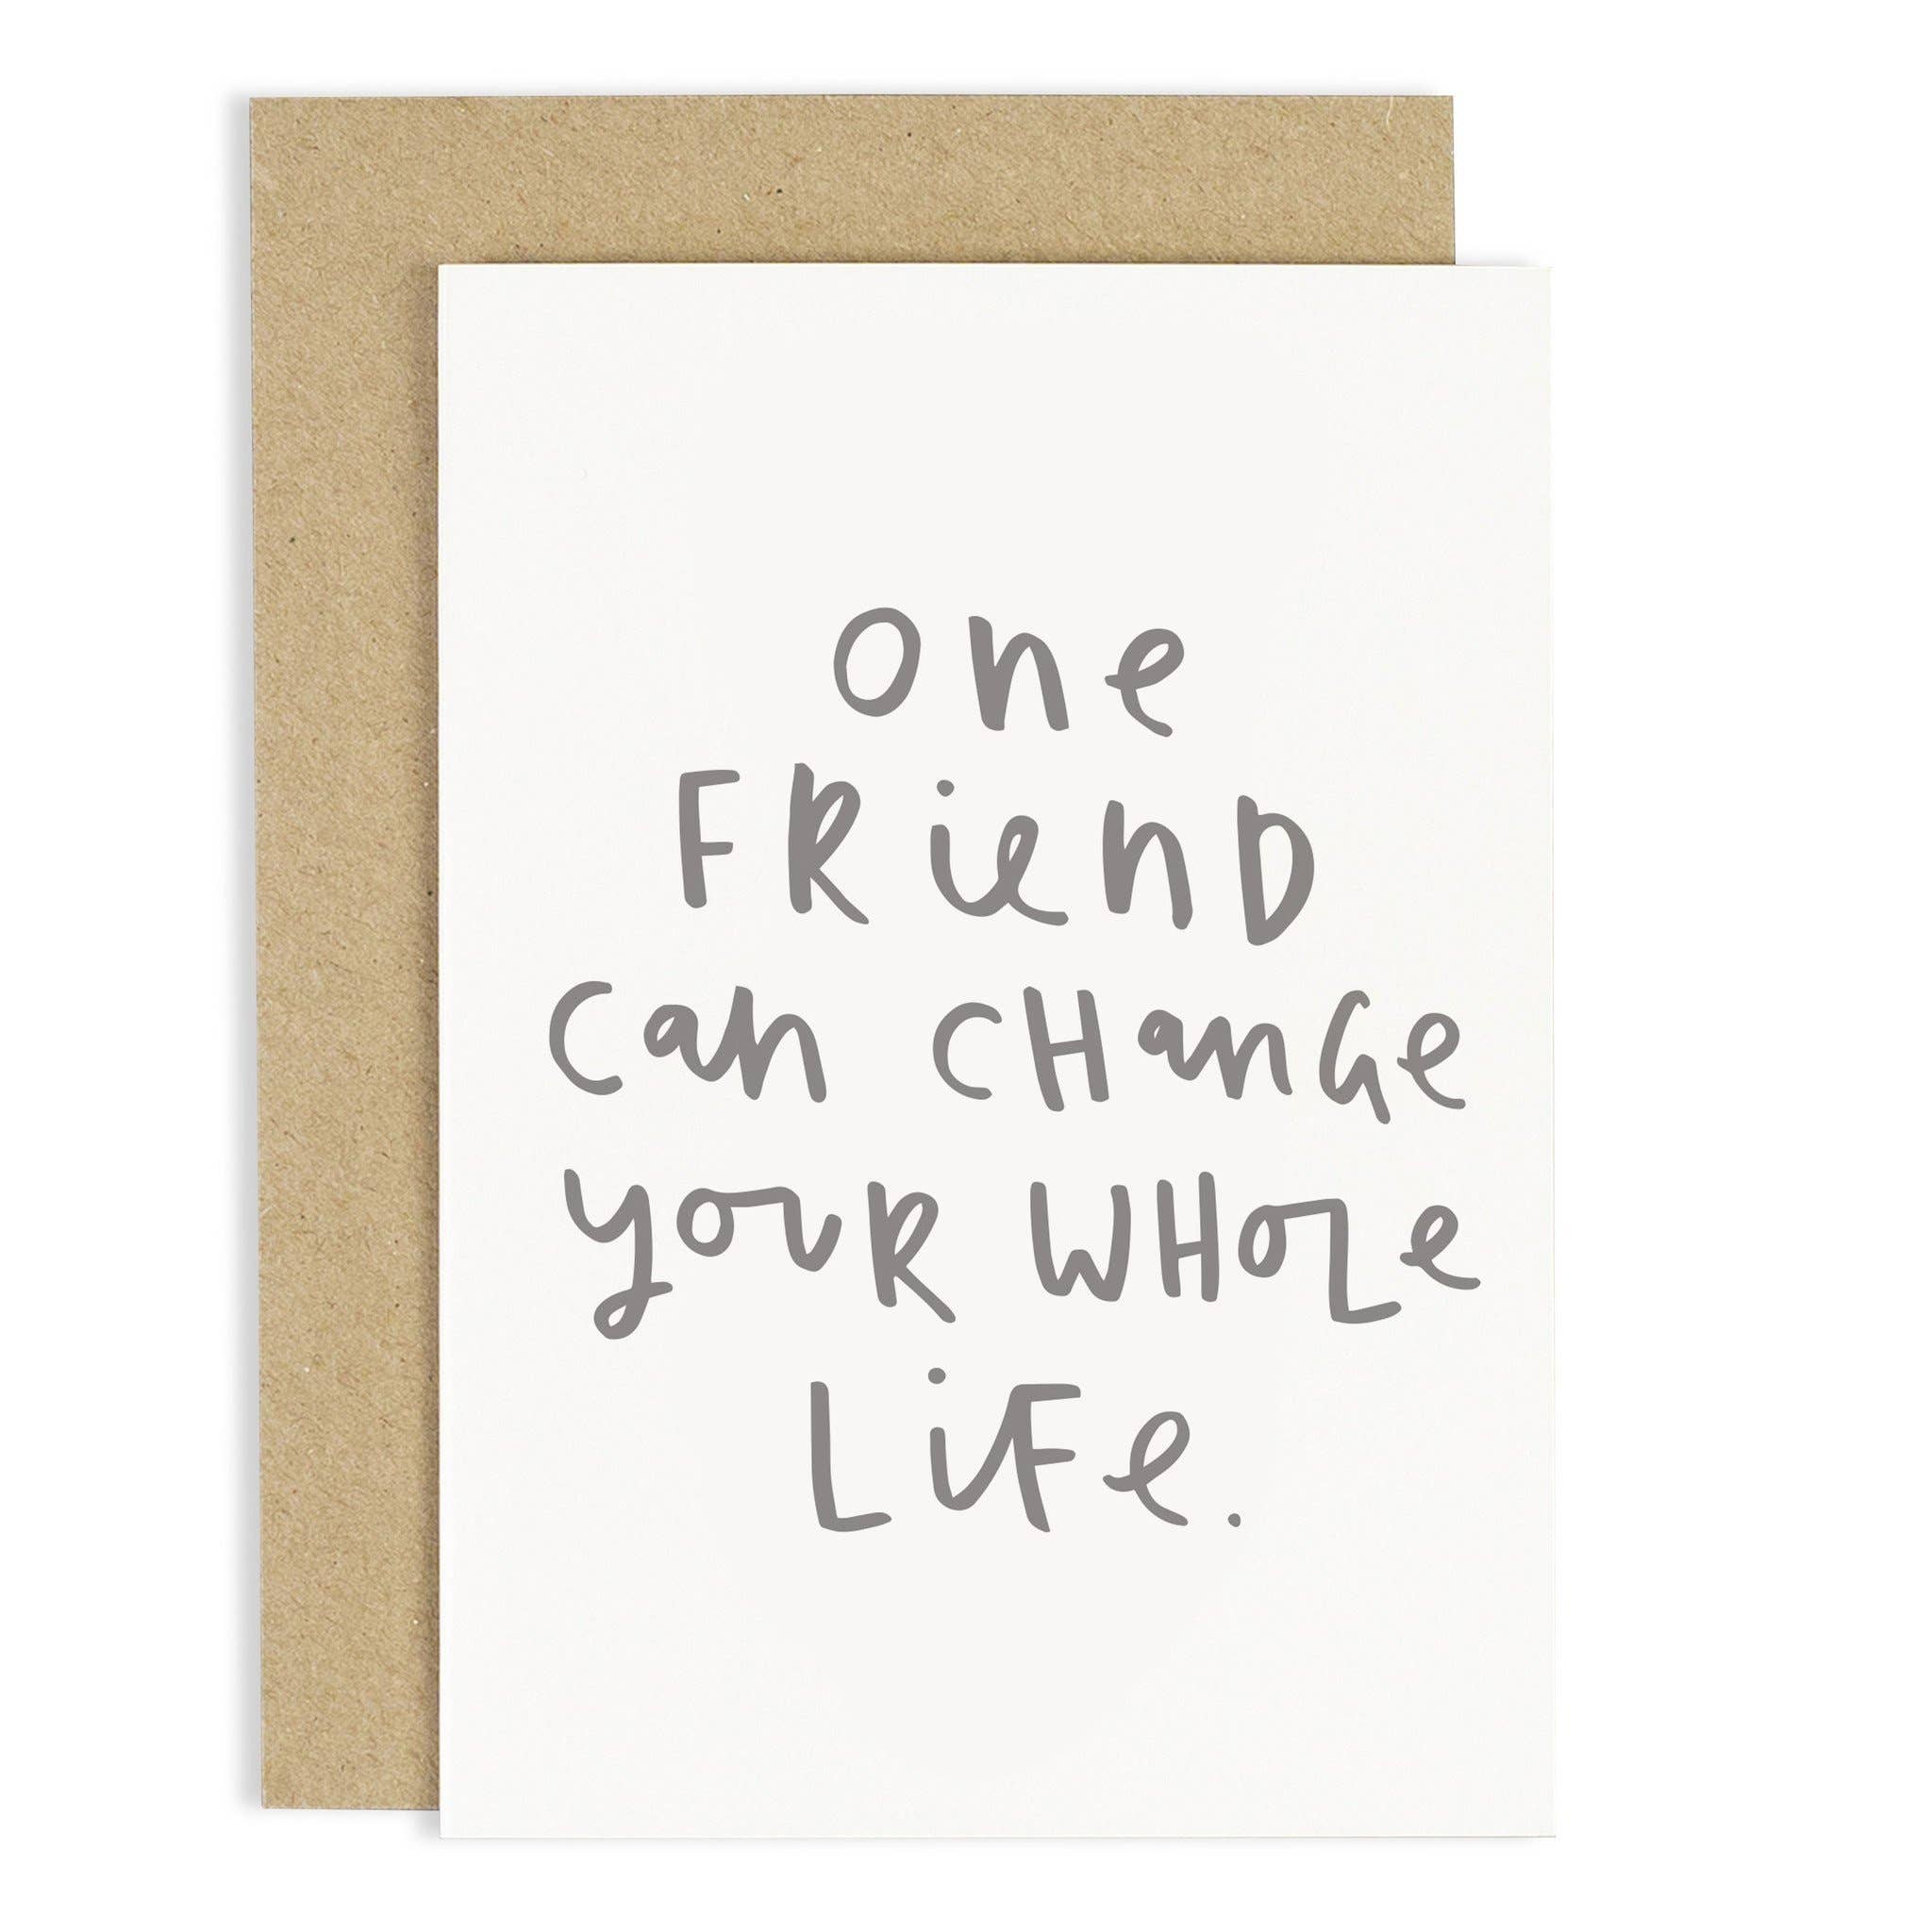 one
FRienD
can CHanGe
youR WHOLe
LiFe.